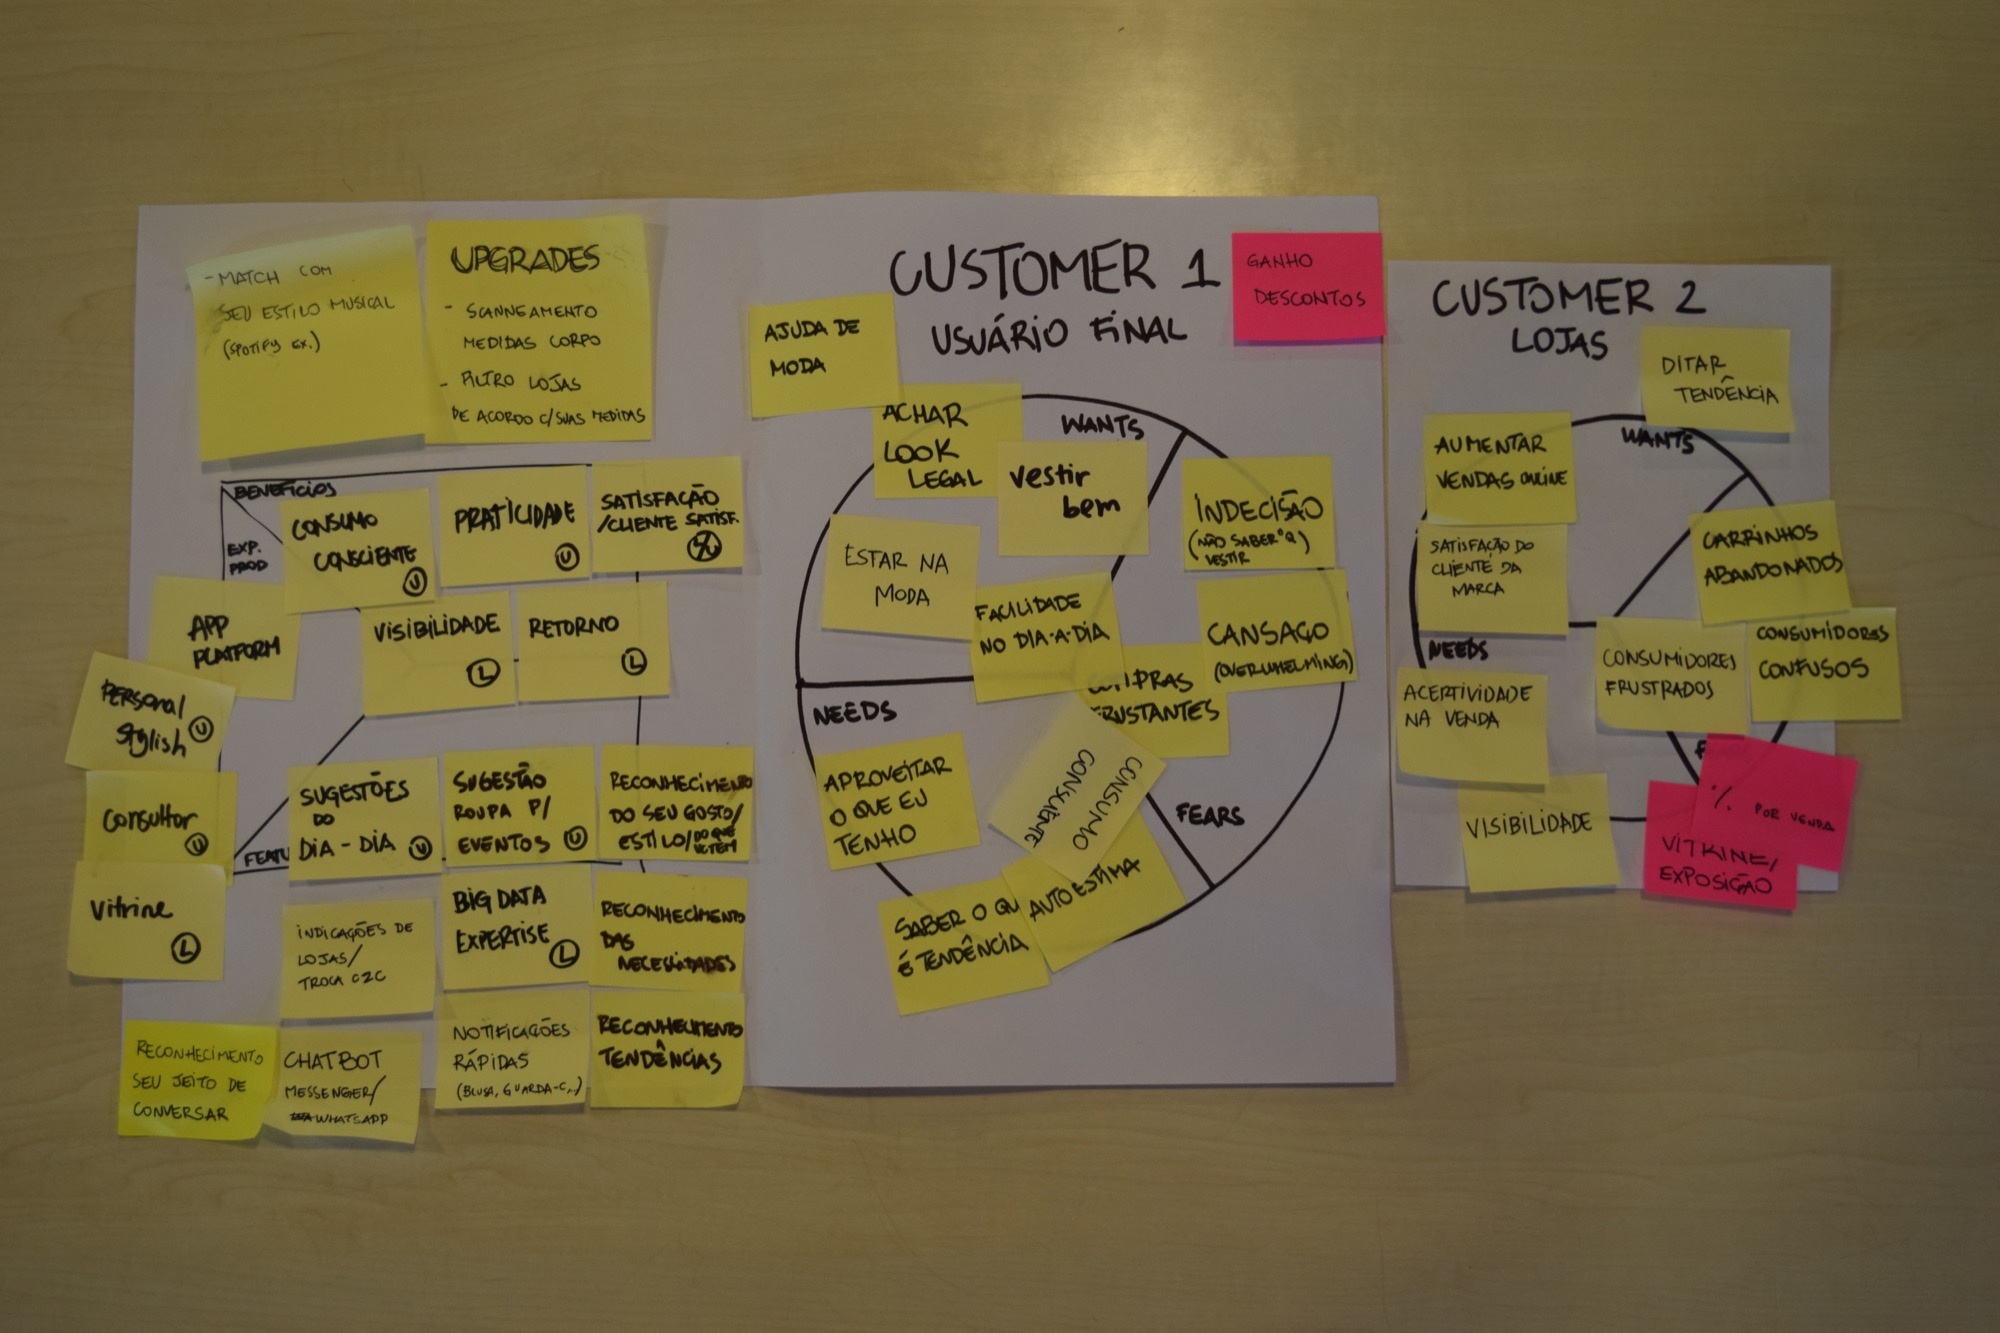 - MATCH COM
SEU ESTILO MUSICAL
(SPOTIFY EX.)
UPGRADES
- SCANNEAMENTO
MEDIDAS CORPO
- FILTRO LOJAS
DE ACORDO C/SUAS MEDIDAS
BENEFÍCIOS
EXP.
PROD
CONSUMO
CONSCIENTE
U
PRATICIDADE
U
SATISFAÇÃO
/CLIENTE SATISF.
L/U
APP
PLATFORM
VISIBILIDADE
L
RETORNO
L
PERSONAL
Stylish U
Consultor
U
Vitrine
L
FEATU
SUGESTÕES
DO
DIA - DIA U
SUGESTÃO
ROUPA P/
EVENTOS U
RECONHECIMENTO
DO SEU GOSTO/
ESTILO/DO QUE
VC TEM
INDICAÇÕES DE
LOJAS/
TROCA C2C
BIG DATA
EXPERTISE L
RECONHECIMENTO
DAS
NECESSIDADES
RECONHECIMENTO
SEU JEITO DE
CONVERSAR
CHATBOT
MESSENGER/
WHATSAPP
NOTIFICAÇÕES
RÁPIDAS
(BLUSA, GUARDA-C,..)
RECONHECIMENTO
TENDÊNCIAS
CUSTOMER 1
USUÁRIO FINAL
GANHO
DESCONTOS
AJUDA DE
MODA
ACHAR
LOOK
LEGAL
WANTS
vestir
bem
ESTAR NA
MODA
INDECISÃO
(NÃO SABER O Q)
VESTIR
FACILIDADE
NO DIA-A-DIA
CANSAÇO
(OVERWHELMING)
MPRAS
RUSTANTES
NEEDS
APROVEITAR
O QUE EU
TENHO
CONSUMO
CONSCIENTE
FEARS
SABER O QU
É TENDÊNCIA
AUTOESTIMA
CUSTOMER 2
LOJAS
DITAR
TENDÊNCIA
AUMENTAR
VENDAS ONLINE
WANTS
SATISFAÇÃO DO
CLIENTE DA
MARCA
CARRINHOS
ABANDONADOS
NEEDS
CONSUMIDORES
FRUSTRADOS
CONSUMIDORES
CONFUSOS
ACERTIVIDADE
NA VENDA
F
VISIBILIDADE
% POR VENDA
VITRINE/
EXPOSIÇÃO